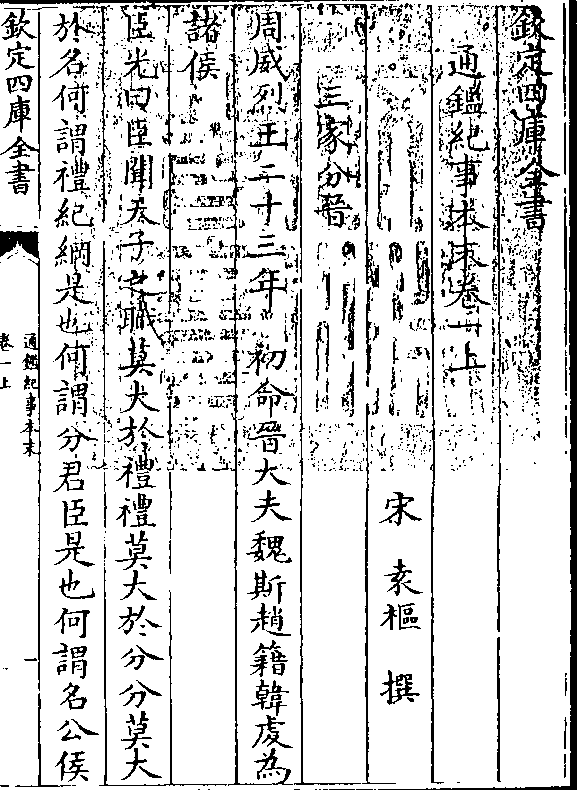 欽定四庫全書
通鑑紀事本末卷一上
宋 袁樞 撰
三家分晉
周威烈王二十三年 初命晉大夫魏斯趙籍韓虔為
諸侯
臣光曰臣聞天子之職莫大於禮禮莫大於分分莫大
於名何謂禮紀綱是也何謂分君臣是也何謂名公侯
欽定四庫全書
通鑑紀事本末
卷一上
一